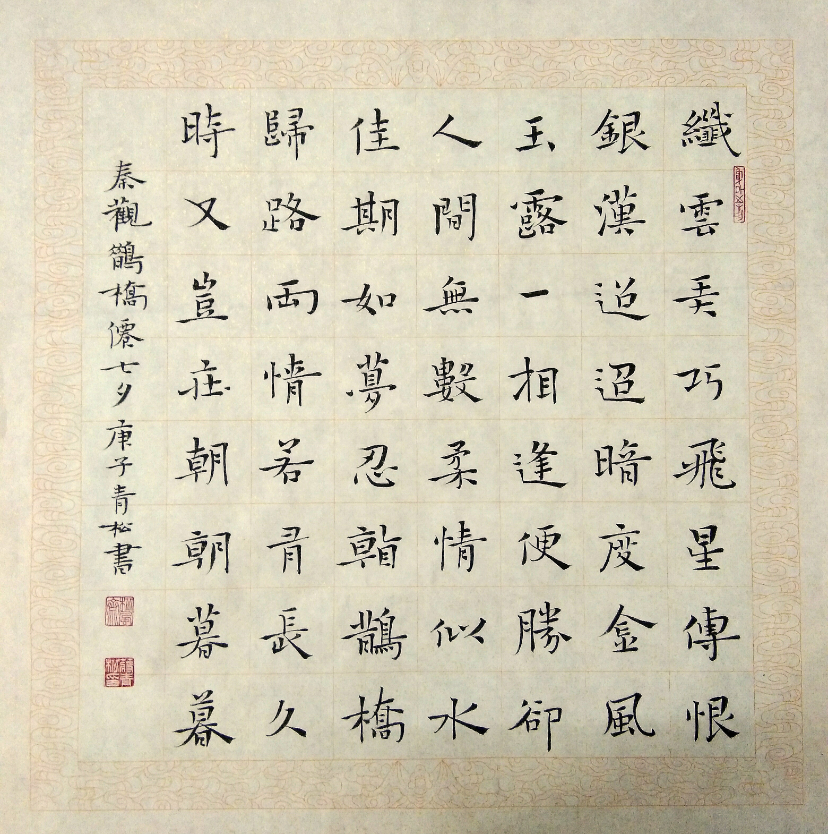 纖雲弄巧飛星傳恨
銀漢迢迢暗度金風
玉露一相逢便勝卻
人間無數柔情似水
佳期如夢忍顧鵲橋
歸路兩情若是長久
時又豈在朝朝暮暮
秦觀鵲橋僊七夕 庚子青松書